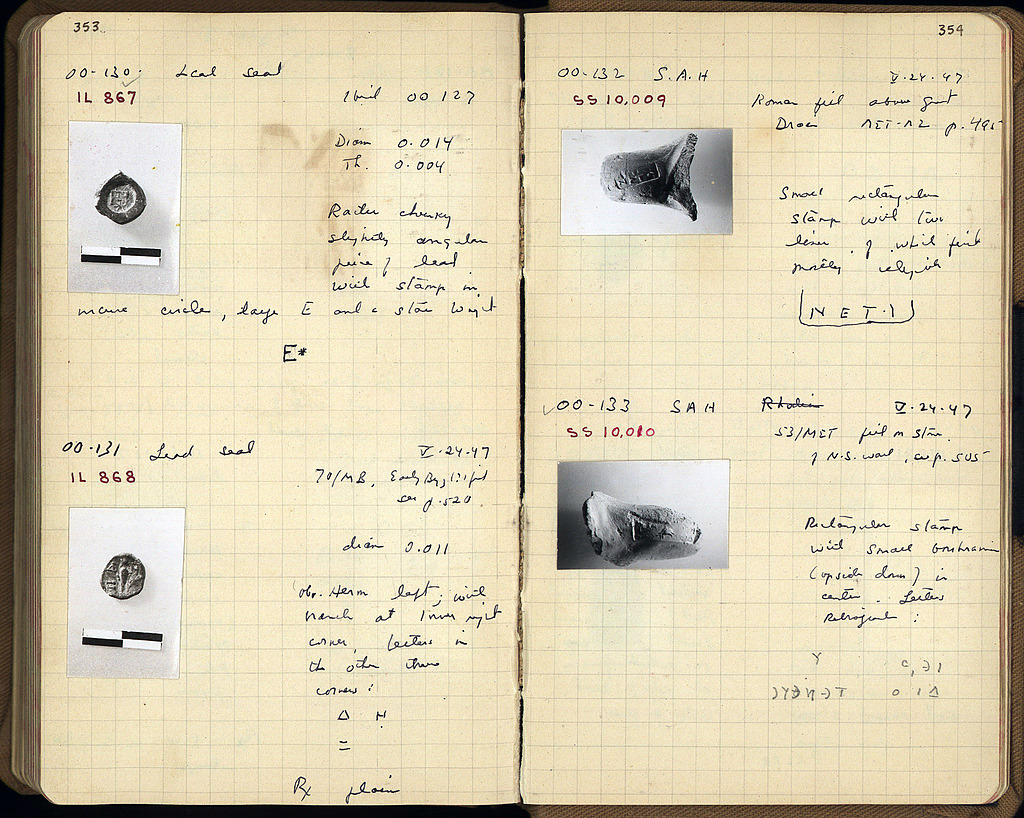 353
00-130. Lead seal
IL 867
Ibid 00 127
Diam 0.014
Th. 0.004
Rather chunky
slightly angular
piece of lead
with stamp in
circle, large E and a star to right
E*
00-131 Lead seal V-24-47
IL 868
70/MB, Early Byz.
see p. 520
diam 0.011
obv. Herm left, with
at lower right
corner, letters in
the other three
corners:
Δ H
Rx plain
354
00-132 S.A.H V-24-47
SS 10,009
Roman fill above
Drain p. 495
Small rectangular
stamp with two
lines, of which first
mostly illegible
N E T · I
00-133 SAH Rhodian V-24-47
SS 10,010
53/MET fill in
of N.S. wall, p. 505
Rectangular stamp
with small
(upside down) in
center. Letters
Retrograde: